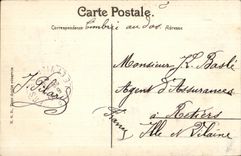 Carte Postale.
Correspondance
Timbrée au dos
Adresse
Monsieur K. Baslé
Agent d'Assurances
à Retiers
Ille et Vilaine